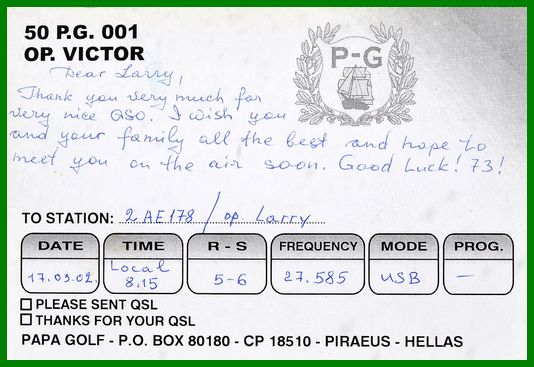 50 P.G. 001
OP. VICTOR
P-G
Dear Larry,
Thank you very much for
very nice QSO. I wish you
and your family all the best and hope to
meet you on the air soon. Good Luck! 73!
TO STATION: 2AE178 / op. Larry
DATE TIME R - S FREQUENCY MODE PROG.
17.03.02. Local 8.15 5-6 27.585 USB —
PLEASE SENT QSL
THANKS FOR YOUR QSL
PAPA GOLF - P.O. BOX 80180 - CP 18510 - PIRAEUS - HELLAS